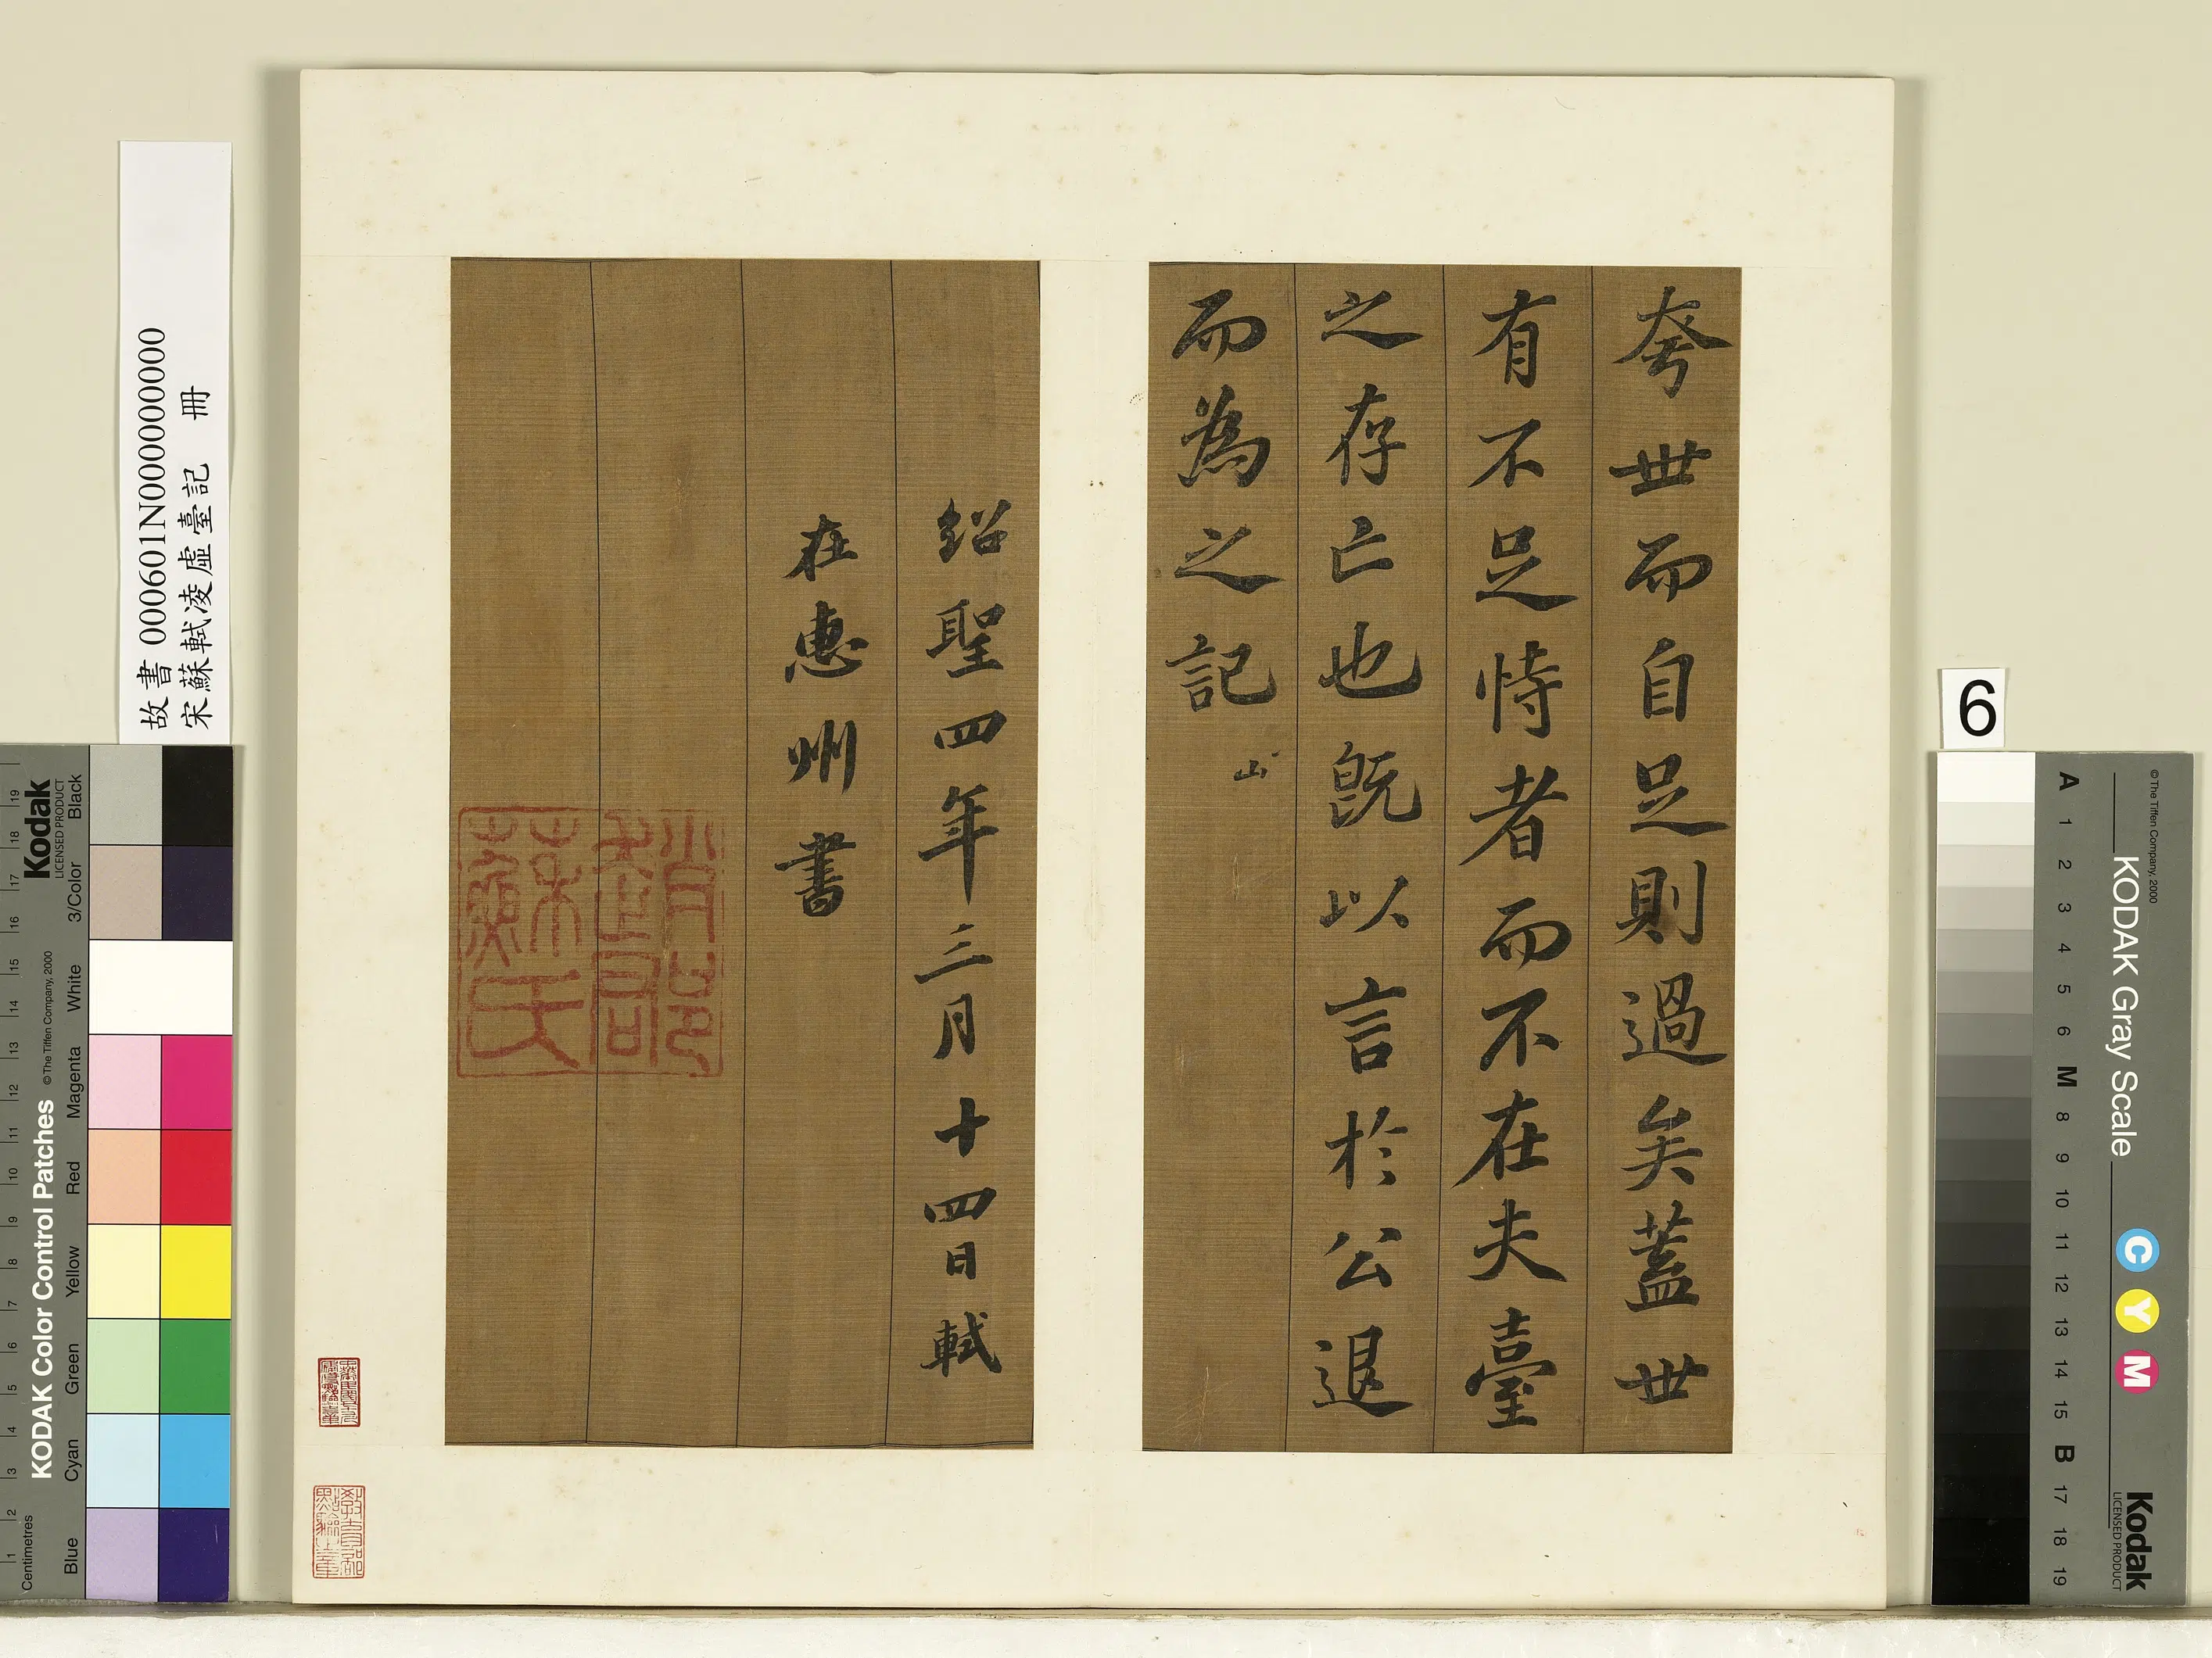 夸世而自足則過矣蓋世
有不足恃者而不在夫臺
之存亡也既以言於公退
而為之記
紹聖四年三月十四日軾
在惠州書
趙郡蘇氏
教育部點驗之章
故書 000601N000000000
宋蘇軾凌虛臺記 冊
6
Kodak
LICENSED PRODUCT
KODAK Color Control Patches
© The Tiffen Company, 2000
Centimetres
1 2 3 4 5 6 7 8 9 10 11 12 13 14 15 16 17 18 19
Blue Cyan Green Yellow Red Magenta White 3/Color Black
KODAK Gray Scale
© The Tiffen Company, 2000
C Y M
Kodak
LICENSED PRODUCT
A 1 2 3 4 5 6 M 8 9 10 11 12 13 14 15 B 17 18 19